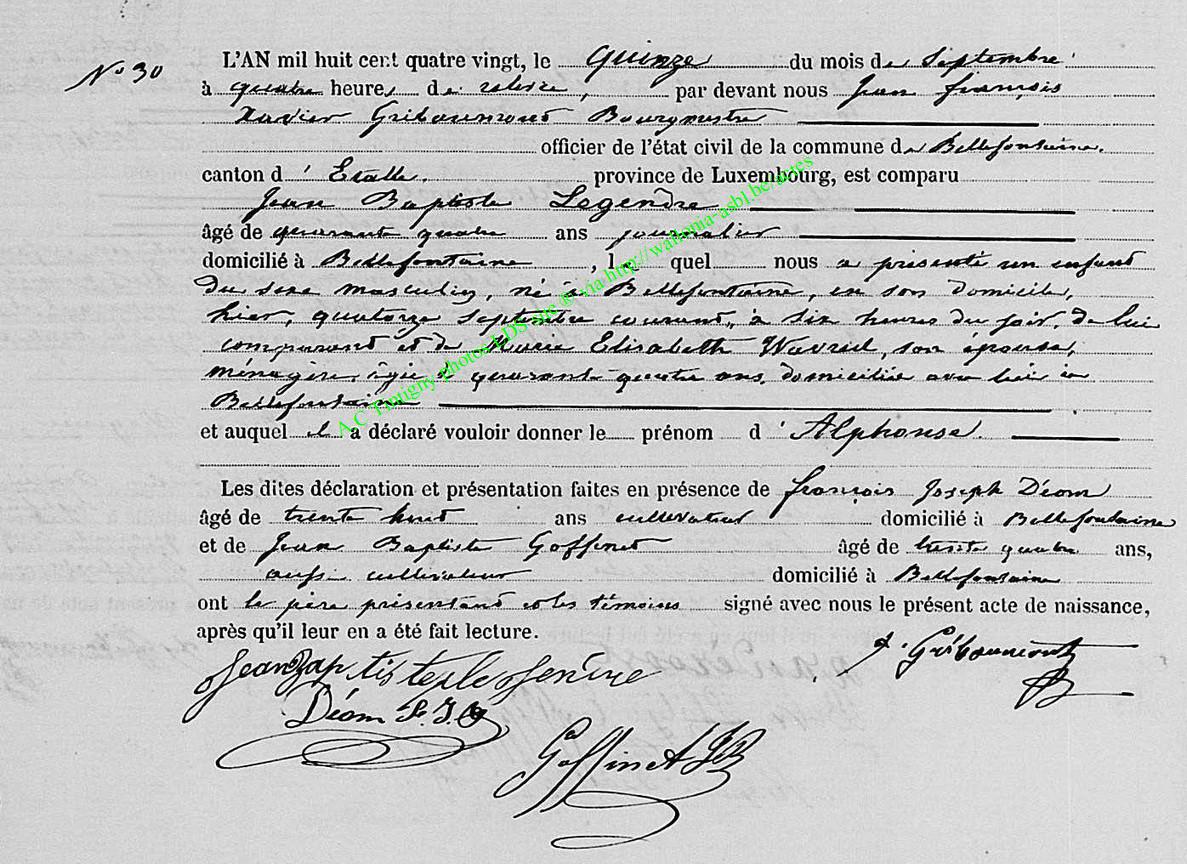 N° 30
L'AN mil huit cent quatre vingt, le quinze du mois de Septembre
à quatre heures de relevée, par devant nous Jean françois
Xavier Gribaumont Bourgmestre
officier de l'état civil de la commune de Bellefontaine.
canton d'Etalle. province de Luxembourg, est comparu
Jean Baptiste Legendre
âgé de quarant quatre ans journalier
domicilié à Bellefontaine, lequel nous a présenté un enfant
du sexe masculin, né à Bellefontaine, en son domicile,
hier, quatorze Septembre courant, à six heures du soir, de lui
comparant et de Marie Elisabeth Wavreil, son épouse,
ménagère, âgée de quarante quatre ans, domiciliée avec lui à
Bellefontaine
et auquel il a déclaré vouloir donner le prénom d'Alphonse.
Les dites déclaration et présentation faites en présence de françois Joseph Déom
âgé de trente huit ans cultivateur domicilié à Bellefontaine
et de Jean Baptiste Goffinet âgé de trente quatre ans,
aussi cultivateur domicilié à Bellefontaine
ont le père présentant et les témoins signé avec nous le présent acte de naissance,
après qu'il leur en a été fait lecture.
Jean Baptiste le Jendre
Gribaumont
Déom F. J.
Goffinet JB
A.C Tintigny photos LDS snc ® via http://wallonia-asbl.be/actes